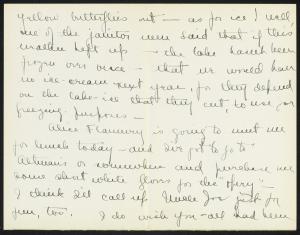 yellow butterflies out – as for ice! Well,
one of the janitor men said that if this
weather kept up – the lake hasn't been
frozen over once – that we would have
no ice-cream next year, for they depend
on the lake-ice that they cut, to use for
freezing purposes –
Alice Flannery is going to meet me
for lunch today – and I've got to go to
Altman's or somewhere and purchase me
some short white gloves for the "opery".
I think I'll call up Uncle Jos just for
fun, too. I do wish you-all had been